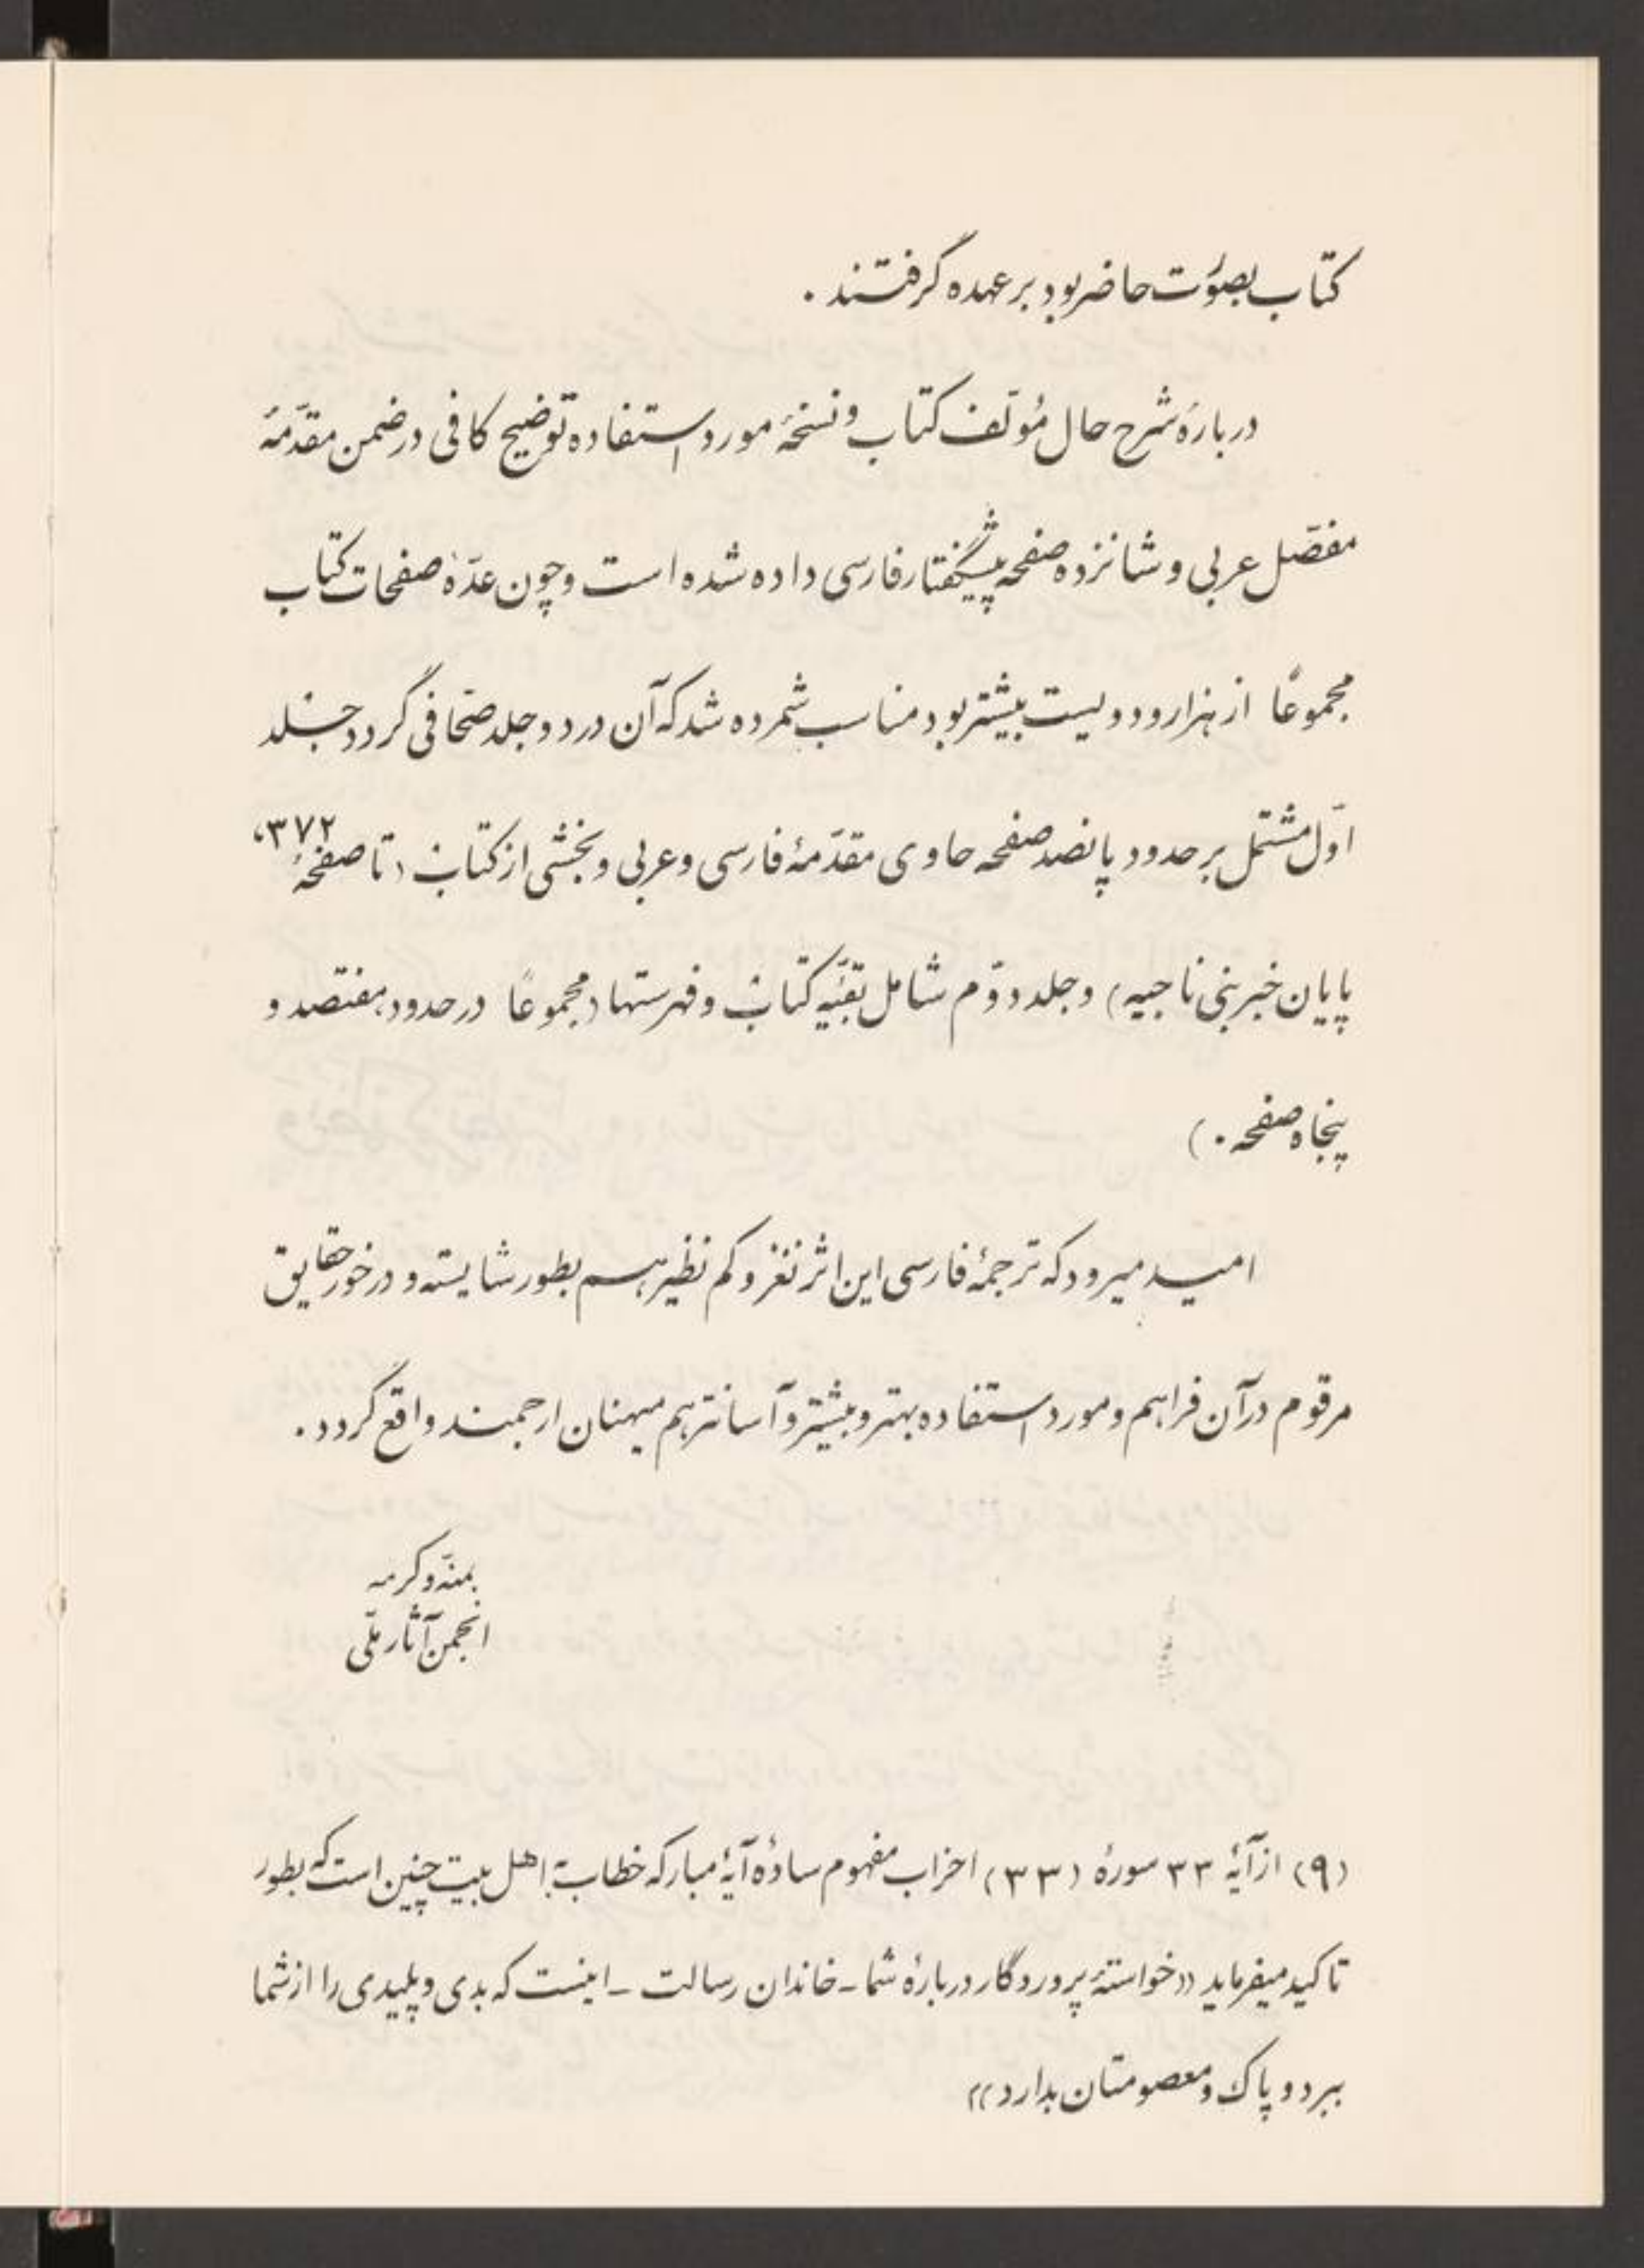 کتاب بصورت حاضر بود بر عهده گرفتند .
دربارهٔ شرح حال مؤلّف کتاب و نسخهٔ مورد استفاده توضیح کافی در ضمن مقدّمهٔ
مفصّل عربی و شانزده صفحه پیشگفتار فارسی داده شده است و چون عدّهٔ صفحات کتاب
مجموعاً از هزار و دویست بیشتر بود مناسب شمرده شد که آن در دو جلد صحّافی گردد جلد
اوّل مشتمل بر حدود پانصد صفحه حاوی مقدّمهٔ فارسی و عربی و بخشی از کتاب (تا صفحهٔ ۳۷۲،
پایان خبر بنی ناجیه) و جلد دوّم شامل بقیّه کتاب و فهرستها (مجموعاً در حدود هفتصد و
پنجاه صفحه . )
امید میرود که ترجمهٔ فارسی این اثر نغز و کم نظیر هم بطور شایسته و در خور حقایق
مرقوم در آن فراهم و مورد استفاده بهتر و بیشتر و آسانتر هم میهنان ارجمند واقع گردد .
بمنّه و کرمه
انجمن آثار ملّی
(۹) از آیهٔ ۳۳ سورهٔ (۳۳) احزاب مفهوم سادهٔ آیهٔ مبارکه خطاب به اهل بیت چنین است که بطور
تاکید میفرماید «خواستهٔ پروردگار دربارهٔ شما - خاندان رسالت - اینست که بدی و پلیدی را از شما
ببرد و پاک و معصومتان بدارد»